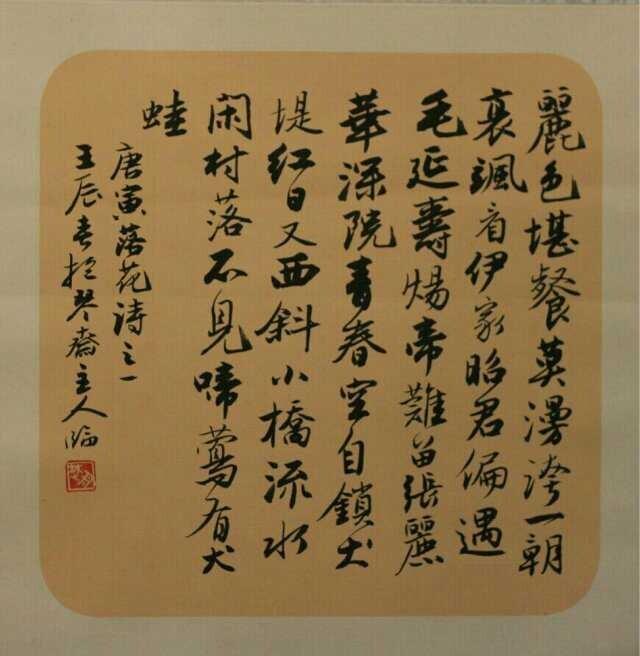 麗色堪餐莫漫誇一朝
衰颯看伊家昭君偏遇
毛延壽煬帝難留張麗
華深院青春空自鎖犬
堤紅日又西斜小橋流水
閑村落不見啼鶯有犬
蛙
唐寅落花詩之一
壬辰春挹琴齋主人臨